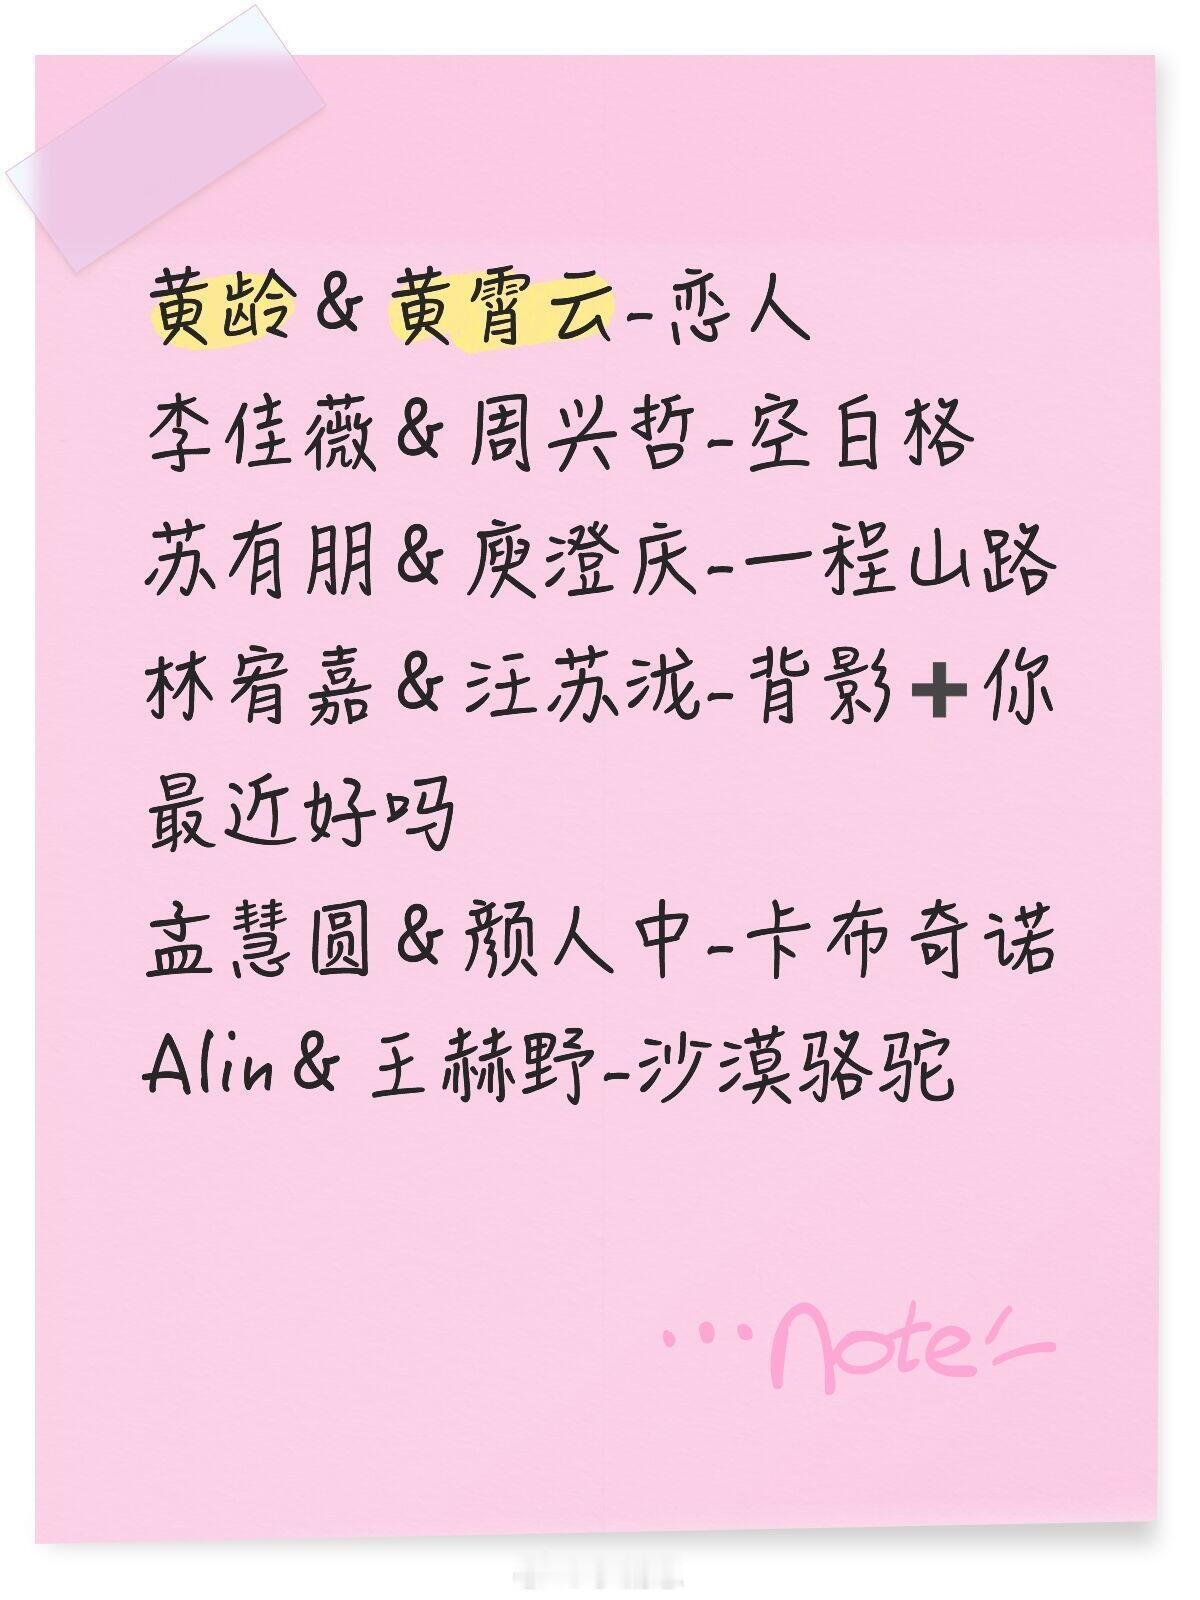 黄龄 & 黄霄云-恋人
李佳薇 & 周兴哲-空白格
苏有朋 & 庾澄庆-一程山路
林宥嘉 & 汪苏泷-背影➕你
最近好吗
孟慧圆 & 颜人中-卡布奇诺
Alin & 王赫野-沙漠骆驼
...note'-